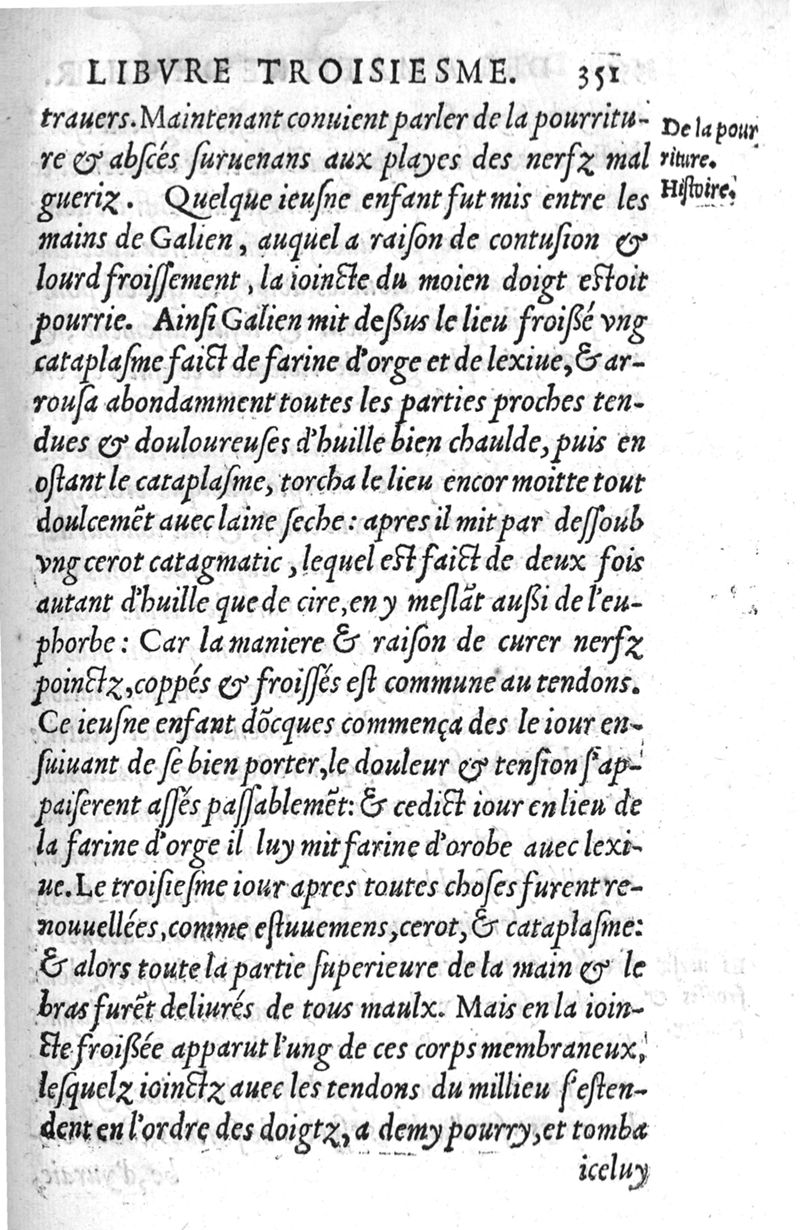 LIBVRE TROISIESME. 351
trauers. Maintenant conuient parler de la pourritu-
re & abscés suruenans aux playes des nerfz mal
gueriz. Quelque ieusne enfant fut mis entre les
mains de Galien, auquel a raison de contusion &
lourd froissement, la ioincte du moien doigt estoit
pourrie. Ainsi Galien mit dessus le lieu froissé vng
cataplasme faict de farine d'orge et de lexiue, & ar-
rousa abondamment toutes les parties proches ten-
dues & douloureuses d'huille bien chaulde, puis en
ostant le cataplasme, torcha le lieu encor moitte tout
doulcemẽt auec laine seche: apres il mit par dessoub
vng cerot catagmatic, lequel est faict de deux fois
autant d'huille que de cire, en y meslãt aussi de l'eu-
phorbe: Car la maniere & raison de curer nerfz
poinctz, coppés & froissés est commune au tendons.
Ce ieusne enfant dõcques commença des le iour en-
suiuant de se bien porter, le douleur & tension s'ap-
paiserent assés passablemẽt: & cedict iour en lieu de
la farine d'orge il luy mit farine d'orobe auec lexi-
ue. Le troisiesme iour apres toutes choses furent re-
nouuellées, comme estuuemens, cerot, & cataplasme:
& alors toute la partie superieure de la main & le
bras furẽt deliurés de tous maulx. Mais en la ioin-
cte froissée apparut l'ung de ces corps membraneux,
lesquelz ioinctz auec les tendons du millieu s'esten-
dent en l'ordre des doigtz, a demy pourry, et tomba
iceluy
De la pour
riture.
Histoire.